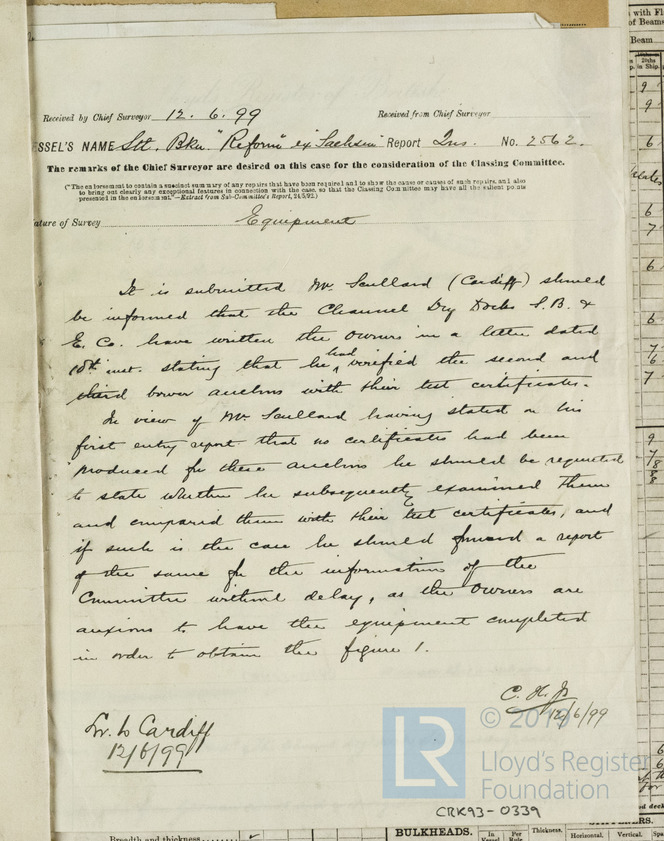 with Fl
of Beams
Beam
Received by Chief Surveyor 12. 6. 99 Received from Chief Surveyor
ESSEL'S NAME Stl. Bkn. "Reform" ex "Sachsen" Report Ins. No. 2562.
The remarks of the Chief Surveyor are desired on this case for the consideration of the Classing Committee.
("The endorsement to contain a succinct summary of any repairs that have been required and to show the cause or causes of such repairs, and also
to bring out clearly any exceptional features in connection with the case, so that the Classing Committee may have all the salient points
presented in the endorsement."—Extract from Sub-Committee's Report, 24/5/92.)
ature of Survey Equipment
It is submitted Mr. Scullard (Cardiff) should
be informed that the Channel Dry Docks S.B. &
E. Co. have written the owners in a letter dated
10th inst. stating that he had verified the second and
third bower anchors with their test certificates.
In view of Mr. Scullard having stated on his
first entry report that no certificates had been
produced for these anchors he should be requested
to state whether he subsequently examined them
and compared them with their test certificates, and
if such is the case he should forward a report
of the same for the information of the
Committee without delay, as the Owners are
anxious to have the equipment completed
in order to obtain the figure 1.
C. H. J.
12/6/99
Lr. to Cardiff
12/6/99
LR © 20
Lloyd's Register
Foundation
CRK93-0339
Breadth and thickness
BULKHEADS.
In Vessel. Per Rule. Thickness. Horizontal. Vertical.